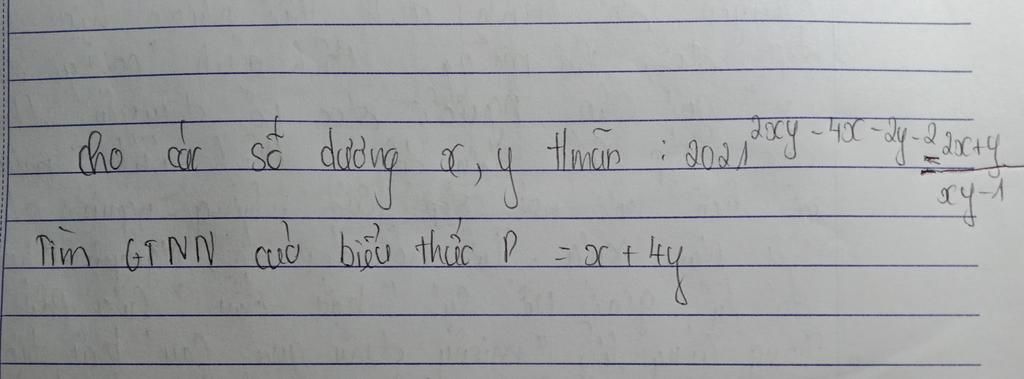 Cho các số dương x, y t/mãn : 2021^{2xy - 4x - 2y - 2} = \frac{2x+y}{xy-1}
Tìm GTNN cuả biểu thức P = x + 4y